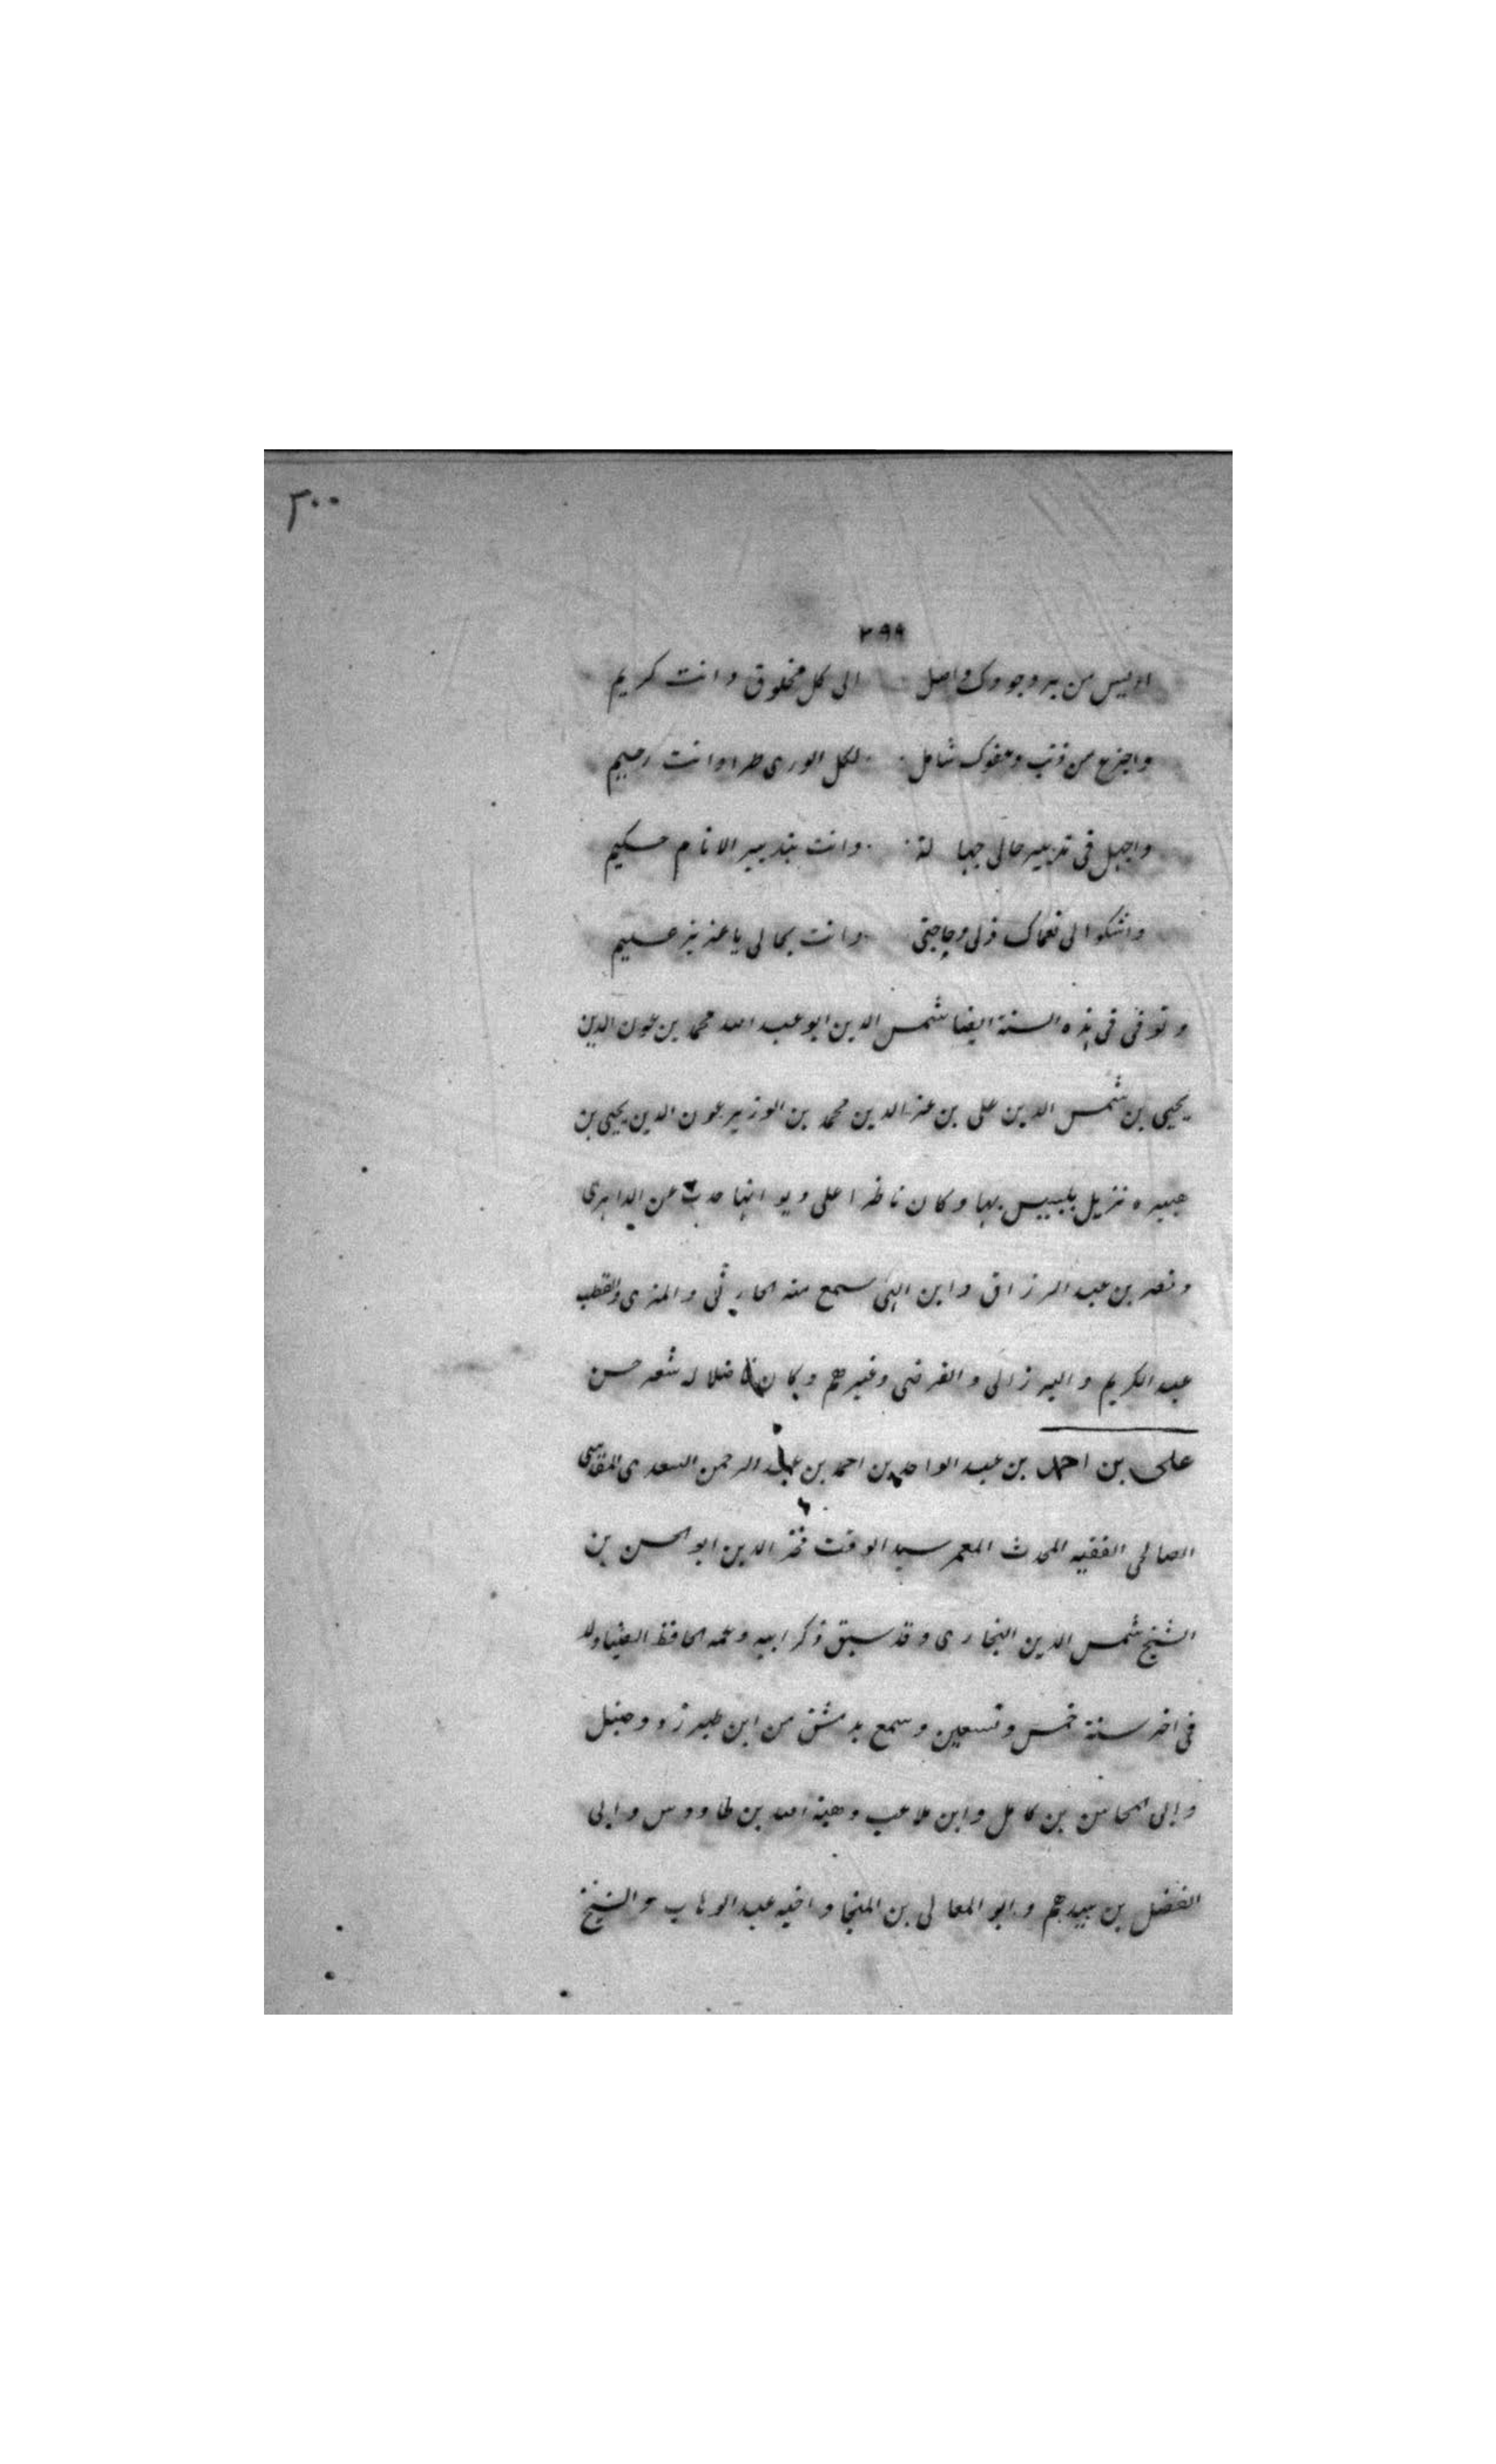 ٣٠٠
٢٩٩
اوليس من بر وجودك واصل الى كل مخلوق وانت كريم
واجزع من ذنب وعفوك شامل لكل الورى طرا وانت رحيم
واجهل فى تدبير حالى جهالة وانت بتدبير الانام حكيم
واشكوا لى نعماك ذلى وحاجتى وانت بحالى يا عزيز عليم
وتوفى فى هذه السنة ايضا شمس الدين ابو عبد الله محمد بن عون الدين
يحيى بن شمس الدين على بن عز الدين محمد بن الوزير عون الدين يحيى بن
هبيره نزيل بلبيس بها وكان ناظرا على ديوانها حدث عن الداهرى
ونصر بن عبد الرزاق وابن اللتى سمع منه الحارثى والمزى والقطب
عبد الكريم والبرزالى والفرضى وغيرهم وكان فاضلا له شعر حسن
على بن احمد بن عبد الواحد بن احمد بن عبد الرحمن السعدى المقدسى
الصالحى الفقيه المحدث المعمر سيد الوقت فخر الدين ابو الحسن بن
الشيخ شمس الدين البخارى وقد سبق ذكر ابيه وعمه الحافظ الضياء ولد
فى اخر سنة خمس وتسعين وسمع بدمشق من ابن طبرزد وحنبل
وابى المحاسن بن كامل وابن ملاعب وهبة الله بن طاووس وابى
الفضل بن سيدهم وابو المعالى بن المنجا واخيه عبد الوهاب والشيخ